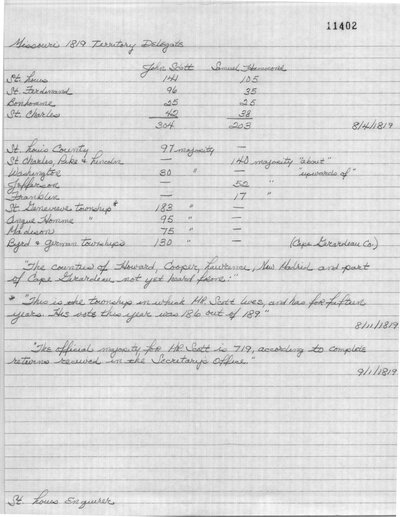 11402
Missouri 1819 Territory Delegate
John Scott Samuel Hammond
St. Louis 141 105
St. Ferdinand 96 35
Bonhomme 25 25
St. Charles 42 38
304 203 8/4/1819
St. Louis County 97 majority —
St Charles, Pike & Lincoln — 140 majority "about"
Washington 80 " — "upwards of"
Jefferson — 52 "
Franklin — 17 "
St. Genevieve township* 183 " —
Cinque Homme " 95 " —
Madison 75 " —
Byrd & German townships 130 " — (Cape Girardeau Co.)
"The counties of Howard, Cooper, Lawrence, New Madrid and part
of Cape Girardeau not yet heard from:"
* "This is the township in which Mr. Scott lives, and has for fifteen
years. His vote this year was 186 out of 189."
8/11/1819
"The official majority for Mr. Scott is 719, according to complete
returns received in the Secretary's Office."
9/1/1819
St. Louis Enquirer